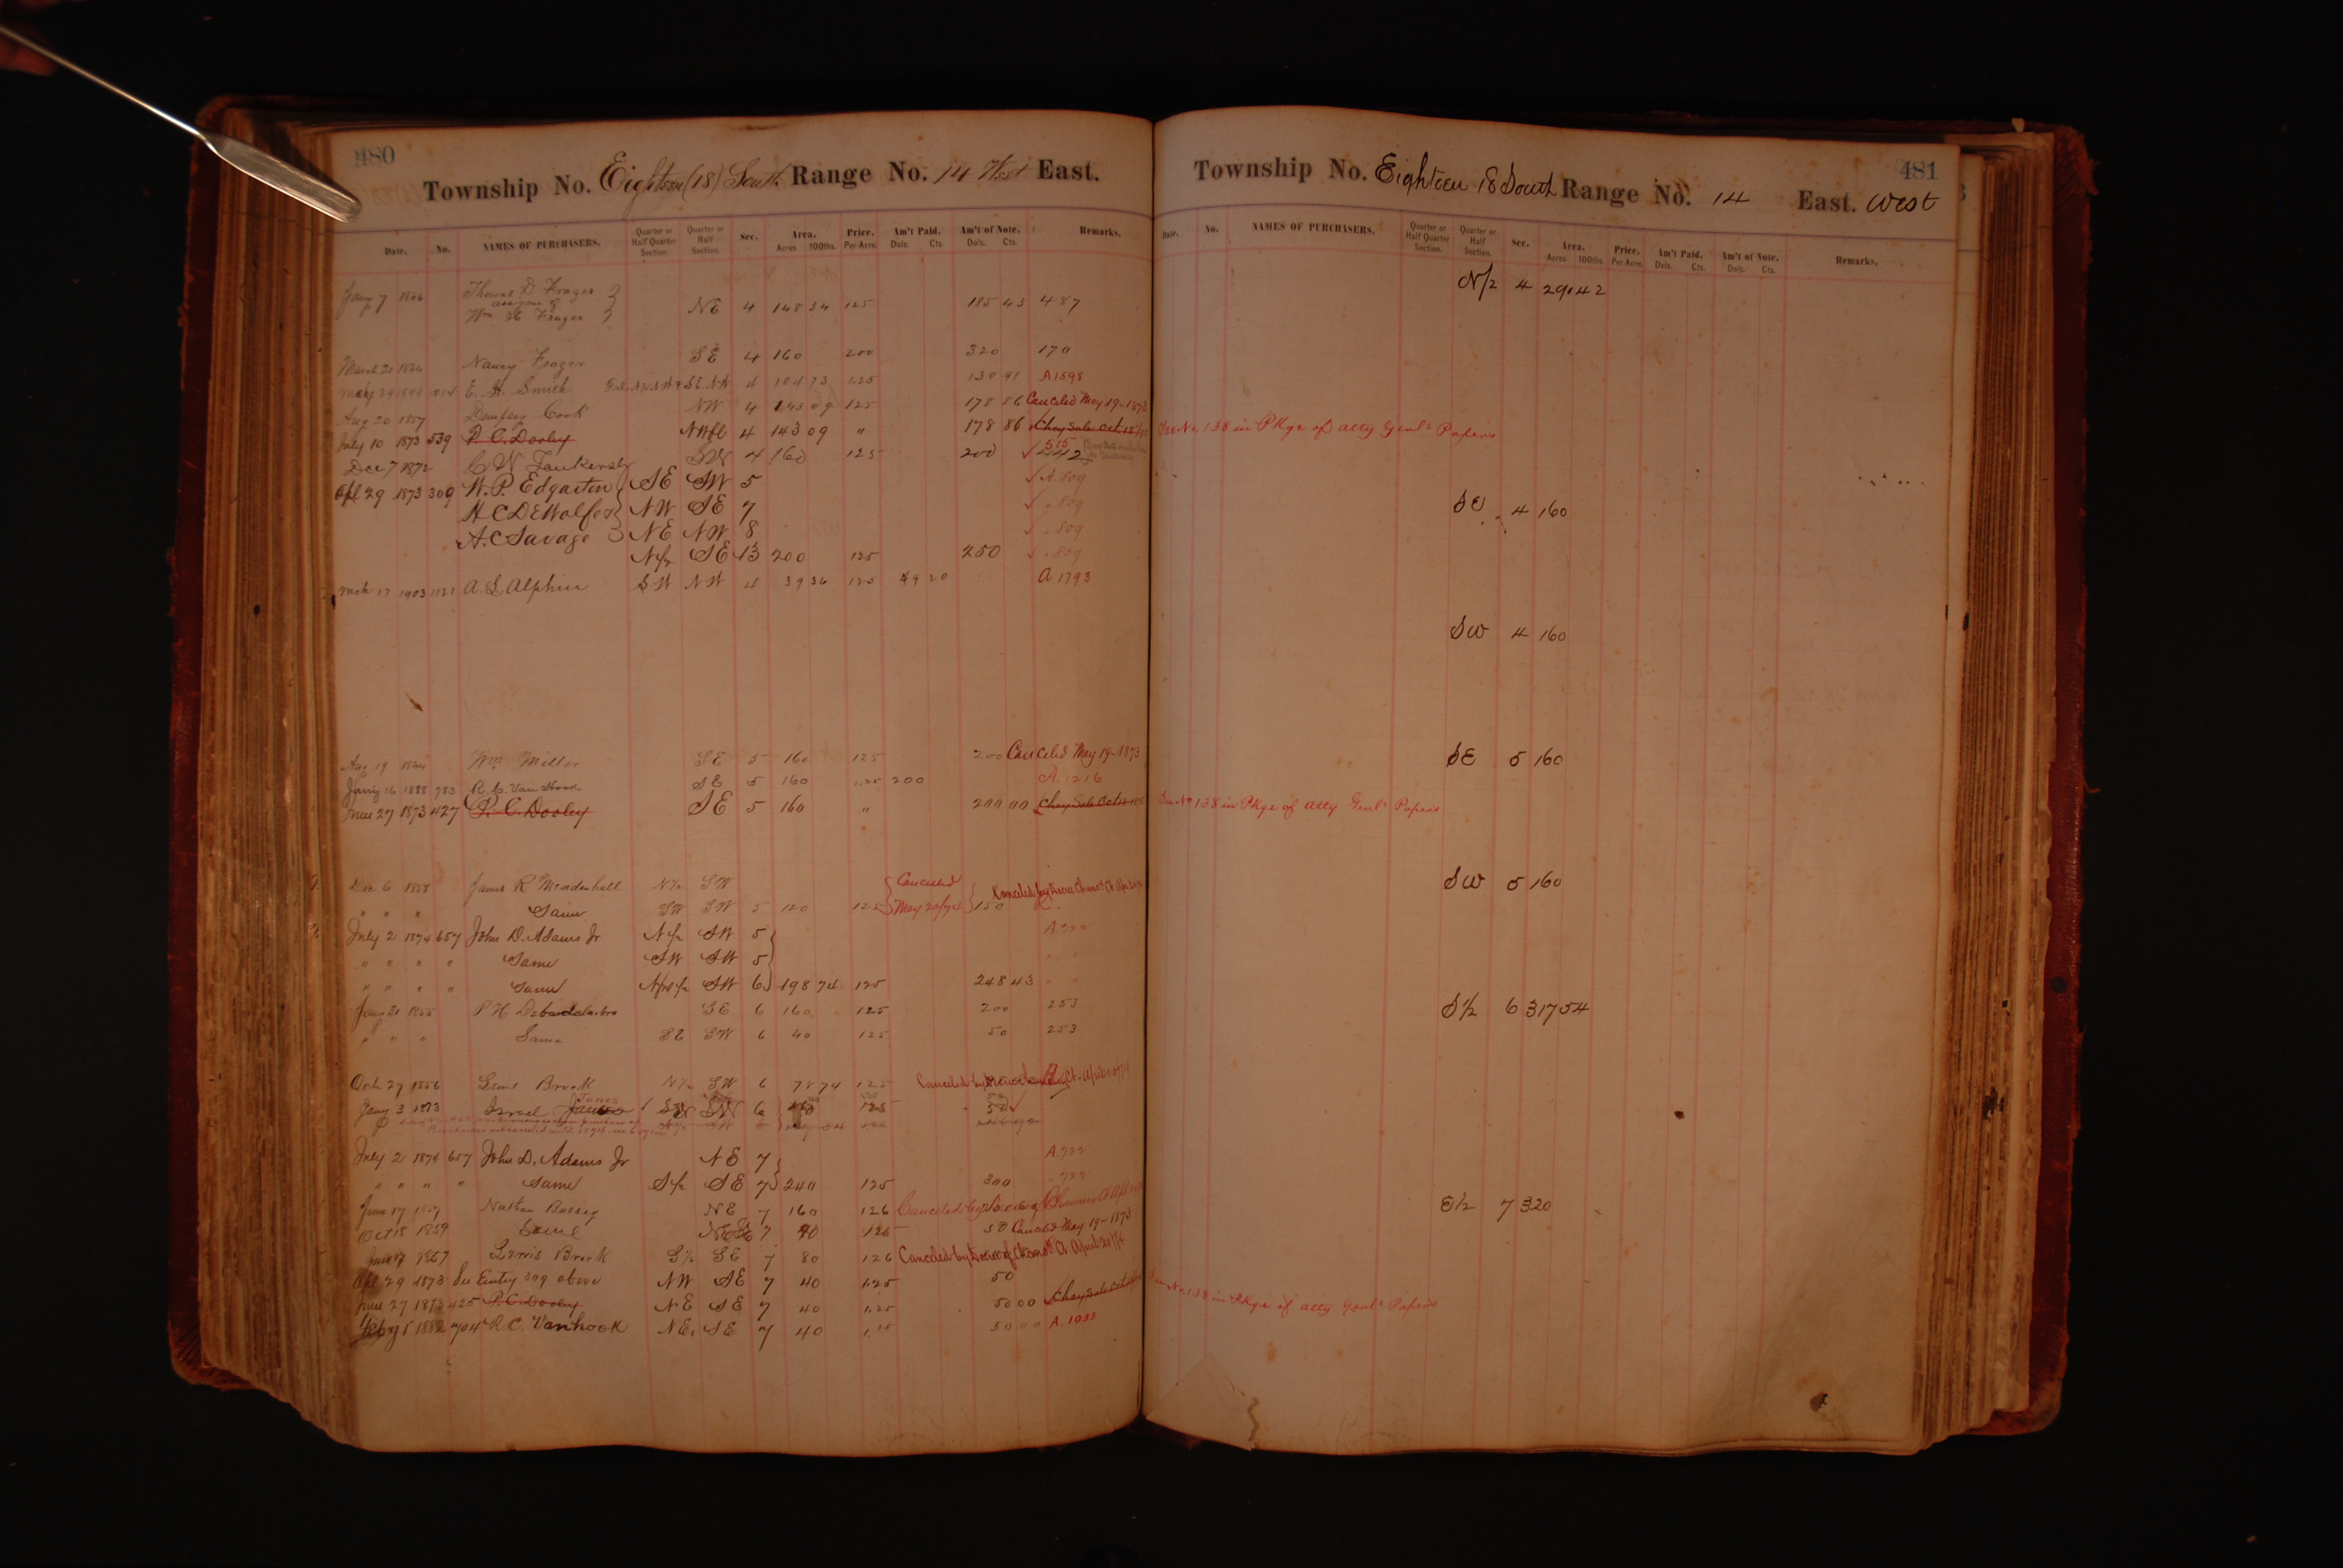 480
Township No. Eighteen (18) South Range No. 14 West East.
Date. No. NAMES OF PURCHASERS. Quarter or Half Quarter Section. Quarter or Half Section. Sec. Area. Acres 100ths. Price. Per Acre. Am't Paid. Dols. Cts. Am't of Note. Dols. Cts. Remarks.
Jany 7 1846 Thomas D Frazer
assignee of
Wm H Frazer NE 4 148 34 125 185 43 487
March 21 Nancy Frazer SE 4 160 200 320 170
1014 E. H. Smith 4 104 73 1.25 130 91 A1598
Aug 20 1857 Dempsey Cook NW 4 143 09 125 178 86 Canceled May 19-1873
July 10 1873 539 P. C. Dooley NWfl 4 143 09 " 178 86 Chay Sale Oct 15
Dec 7 1872 C W SW 4 160 125 200 515 442
Apl 29 1873 309 W. P. Edgarton SE SW 5 A. 809
H C DeWolf NW SE 7 " 809
A. C Savage NE NW 8 " 809
N/2 SE 13 200 125 250 " 809
Mch 17 1903 1121 A. L Alphin SW NW 4 39 36 125 49 20 A 1793
Aug 19 1844 Wm Miller SE 5 160 125 200 Canceled May 19-1873
Jany 16 1888 783 R. C. Van Hook SE 5 160 1.25 200 A. 1216
June 27 1873 427 P. C. Dooley SE 5 160 " 200 00 Chay Sale Oct
Dec 6 1858 James R Mendenhall N/2 SW Canceled
" " " Same SW SW 5 120 125 May 20/74 150
July 2 1874 657 John D. Adams Jr N/2 SW 5 A. 777
" " " " Same SW SW 5 " "
" " " " Same SW 6 198 74 125 248 43 " "
Jany 31 1855 P H SE 6 160 125 200 253
" " " Same SE SW 6 40 125 50 253
Oct 27 1856 Lewis Brook N/2 SW 6 78 74 125 Canceled by
Jany 3 1873 Israel Jones SW 6 125 50
July 2 1874 657 John D. Adams Jr NE 7 A. 777
" " " " Same S/2 SE 7 240 125 300 " 777
June 17 Nathan Bussey NE 7 160 126 Canceled by
Oct 15 1859 Same 7 40 125 50 Canceled May 19-1873
June 17 Lewis Brook S/2 SE 7 80 126 Canceled by Decree of Chanc Ct April 20/74
Apl 29 1873 See Entry 309 above NW SE 7 40 1.25 50
June 27 1873 425 P. C. Dooley NE SE 7 40 1.25 50 00 Chay Sale
Feby 1 1882 704 R C. Vanhook NE. SE 7 40 1.25 50 00 A. 1033
481
Township No. Eighteen 18 South Range No. 14 East. West
Date. No. NAMES OF PURCHASERS. Quarter or Half Quarter Section. Quarter or Half Section. Sec. Area. Acres 100ths. Price. Per Acre. Am't Paid. Dols. Cts. Am't of Note. Dols. Cts. Remarks.
N/2 4 291 42
See No. 138 in Pkge of Atty Genl's Papers
SE 4 160
SW 4 160
SE 5 160
See No. 138 in Pkge of Atty Genl's Papers
SW 5 160
S 1/2 6 317 54
E 1/2 7 320
See No. 138 in Pkge of Atty Genl's Papers